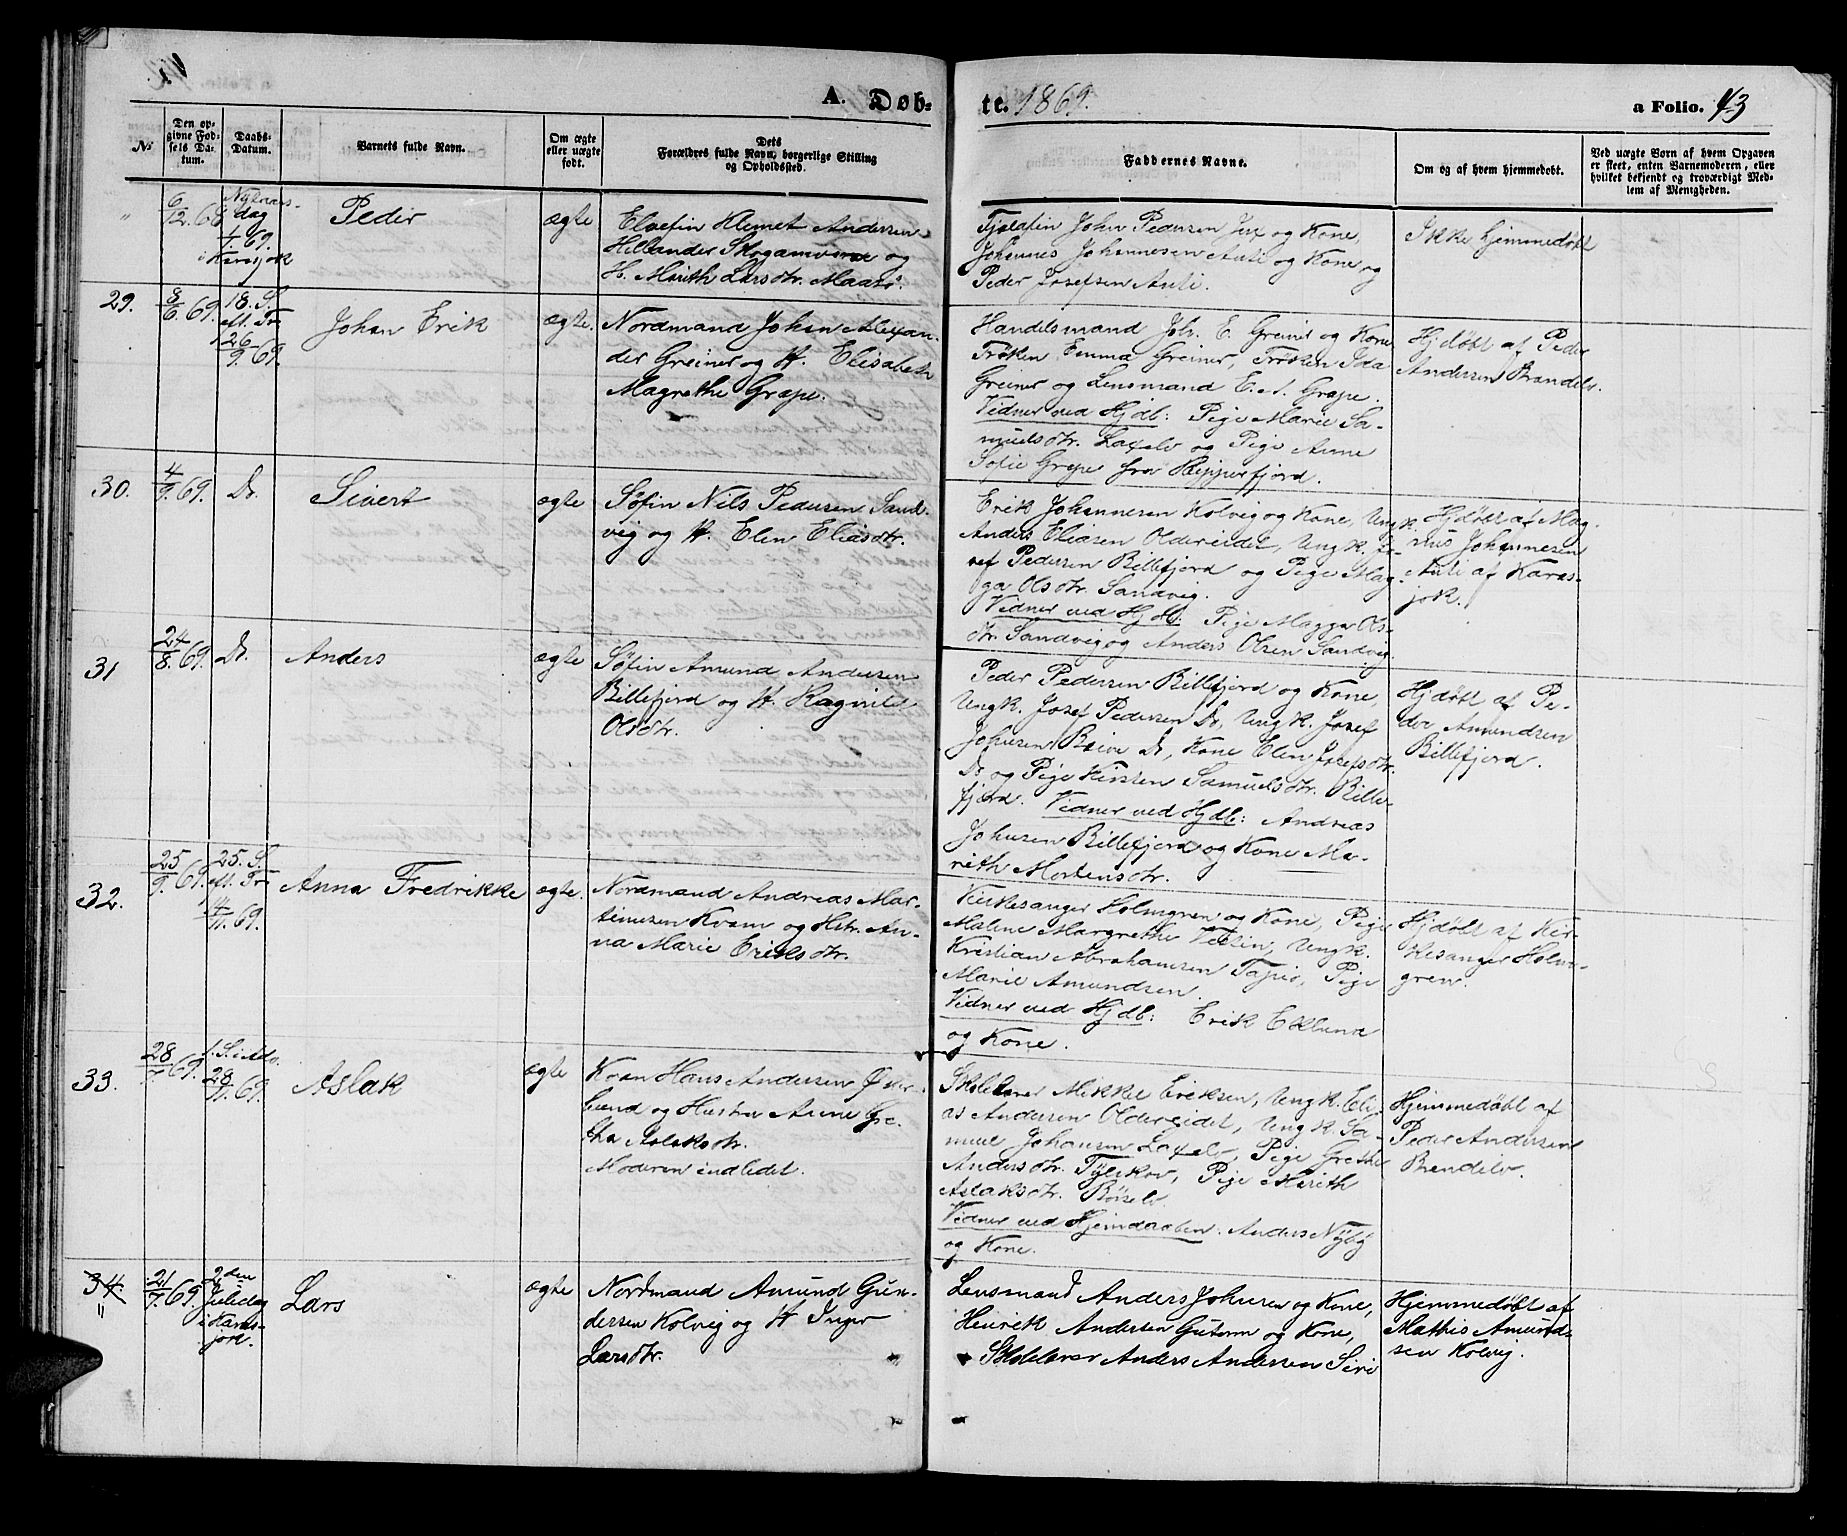 A. Døb-
te. 1869.
a Folio. 43
№
Den op-
givne Fød-
sels Da-
tum.
Daabs-
Datum.
Barnets fulde Navn.
Om ægte
eller uægte
født.
Dets
Forældres fulde Navn, borgerlige Stilling
og Opholdssted.
Faddernes Navne.
Om og af hvem hjemmedøbt.
Ved uægte Børn af hvem Opgaven
er skeet, enten Barnemoderen, eller
hvilket bekjendt og troværdigt Med-
lem af Menigheden.
"
6/12.68
Nytaars-
dag
1/1.69.
i Karasjok
Peder
ægte
Elvefin Klemet Andersen
Hellander Skoganvarre og
H. Marith Larsdtr.
Fjeldfin John Pedersen Jux og Kone,
Johannes Johannesen Anti og Kone og
Peder Josefsen Anti.
Ikke hjemmedøbt
29.
8/6.69.
18. S.
eft. Tr.
26/9.69.
Johan Erik
ægte.
Nordmand Johan Alexan-
der Greiner og H. Elisabeth
Magrethe Grape.
Handelsmand Joh. E. Greiner og Kone,
Frøken Emma Greiner, Frøken Ida
Greiner og Lensmand E. A. Grape.
Vidner ved Hjdb: Pige Marie Sa-
muelsdtr. Laxelv og Pige Anne
Sofie Grape fra Repperfjord.
Hjdøbt af Peder
Andersen Brandelv.
30.
4/9.69.
Do.
Sivert
ægte
Søfin Nils Pedersen Sand-
vig og H. Elen Eliasdtr.
Erik Johannesen Kolvig og Kone, Ungk.
Anders Eliasen Oldereidet, Ungk. Jo-
sef Pedersen Billefjord og Pige Mag-
ga Olsdtr. Sandvig.
Vidner ved Hjdb: Pige Magga Ols-
dtr. Sandvig og Anders Olsen Sandvig.
Hjdøbt af Mag-
nus Johannesen
Anti af Karas-
jok.
31
24/8.69.
Do.
Anders
ægte
Søfin Amund Andersen
Billefjord og H. Ragnild
Olsdtr.
Peder Pedersen Billefjord og Kone,
Ungk. Josef Pedersen Do, Ungk. Josef
Johnsen Beive Do, Kone Elen Josefsdtr.
Do og Pige Kirsten Samuelsdtr. Bille-
fjord. Vidner ved Hjdb: Andreas
Johnsen Billefjord og Kone Ma-
rith Mortensdtr.
Hjdøbt af Pe-
der Amundsen
Billefjord.
32.
25/9.69.
25. S.
eft. Tr.
14/11.69.
Anna Fredrikke
ægte.
Nordmand Andreas Mar-
tinusen Kvam og Hstr. An-
na Marie Eriksdtr.
Kirkesanger Holmgren og Kone, Pige
Maline Margrethe, Ungk.
Kristian Abrahamsen Tapio, Pige
Marie Amundsen.
Vidner ved Hjdb: Erik Eklund
og Kone.
Hjdøbt af Kir-
kesanger Holm-
gren.
33.
28/7.69.
1. S. i Adv.
28/11.69.
Aslak
ægte
Kvæn Hans Andersen Øster-
lund og Hustru Anne Gre-
tha Aslaksdtr.
Moderen indledet.
Skolelærer Mikkel Eriksen, Ungk. Eli-
as Andersen Oldereidet, Ungk. Sa-
muel Johansen Laxelv, Pige Grethe
Andersdtr., Pige Marith
Aslaksdtr. Børselv
Vidner ved Hjemdaaben: Anders Nyby
og Kone.
Hjemmedøbt af
Peder Andersen
Brandelv.
34.
"
21/7.69.
2den
Juledag
i Karas-
jok.
Lars
ægte
Nordmand Amund Gun-
dersen Kolvig og H. Inger
Larsdtr.
Lensmand Anders Johnsen og Kone,
Henrik Andersen Guttorm og Kone,
Skolelærer Anders Andersen Siri
Hjemmedøbt af
Mathis Amund-
sen Kolvig.